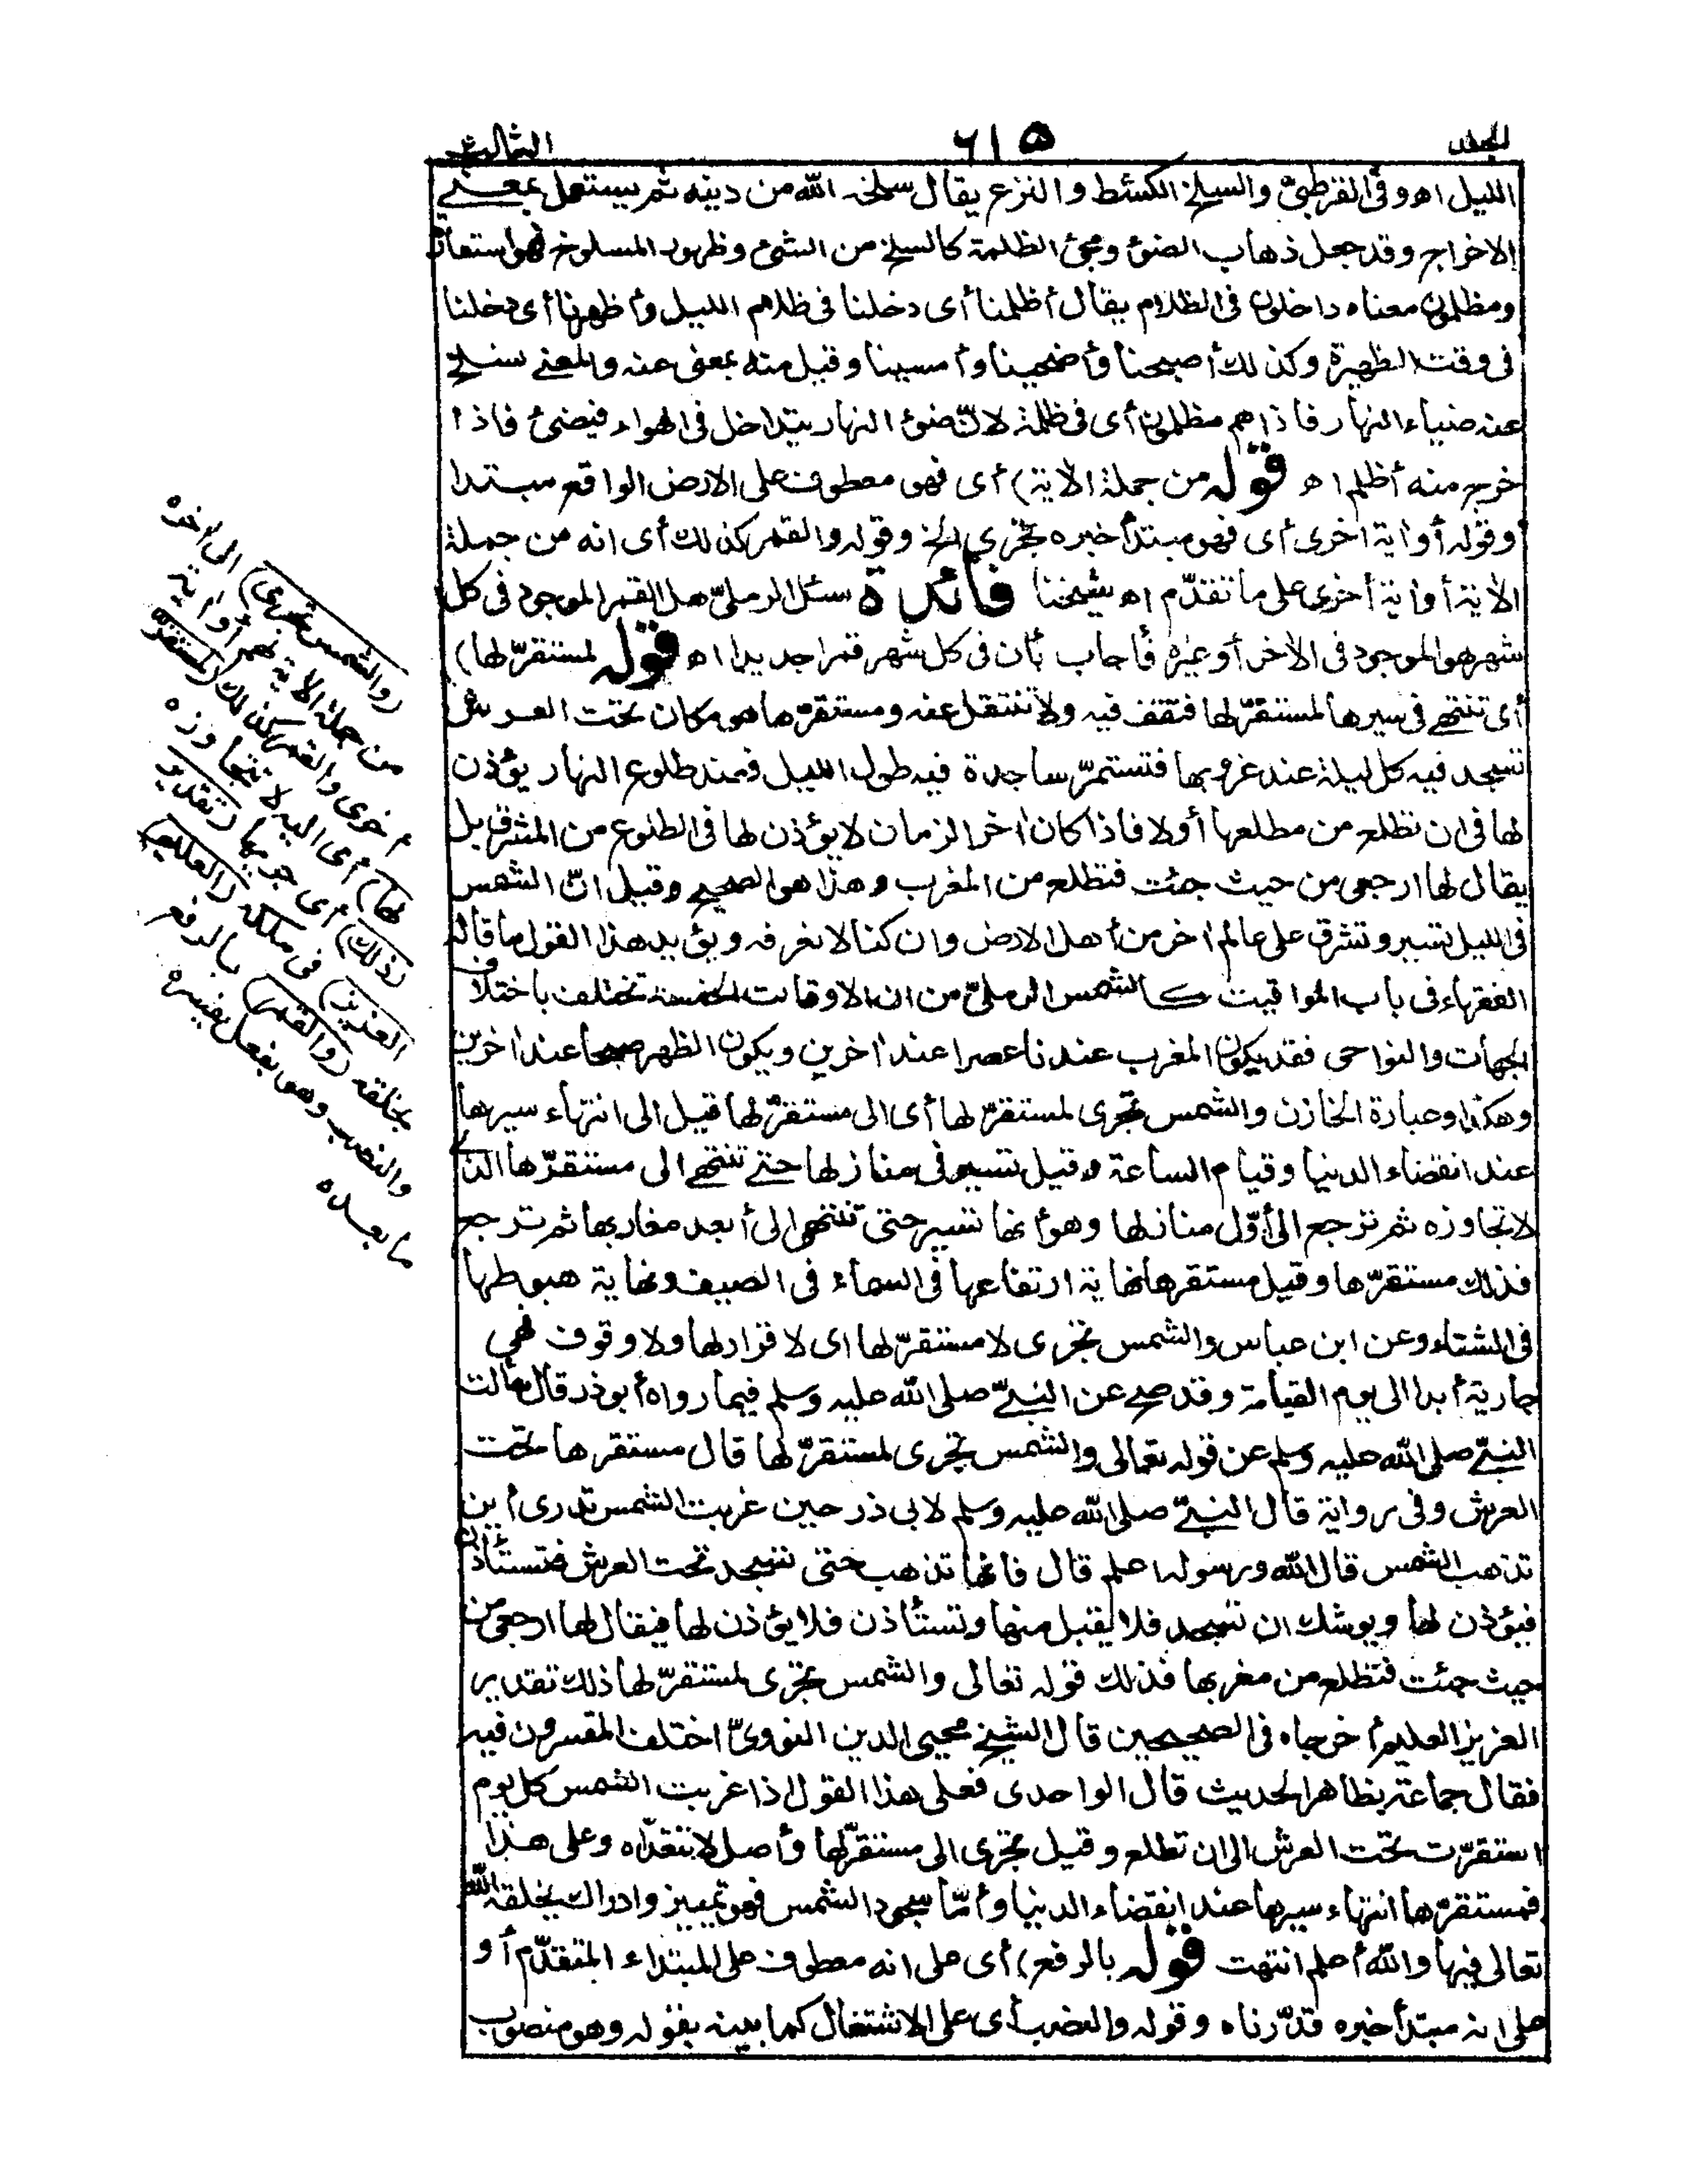 المجلد ٦١٥ الثالث
الليل اه وفى القرطبىّ والسلخ الكشط والنزع يقال سلخه الله من دينه ثم يستعمل بمعنى
الاخراج وقد جعل ذهاب الضوئ ومجئ الظلمة كالسلخ من الشئ وظهور المسلوخ فهو استعارة
ومظلمون معناه داخلون فى الظلام يقال أظلمنا أى دخلنا فى ظلام الليل وأظهرنا أى دخلنا
فى وقت الظهيرة وكذلك أصبحنا وأضحينا وأمسينا وقيل منه بمعنى عنه والمعنى سنلخ
عنه ضياء النهار فاذا هم مظلمون أى فى ظلمة لانّ ضوئ النهار يتداخل فى الهواء فيضئ فاذا
خرج منه أظلم اه قوله من جملة الأية) أى فهو معطوف على الارض الواقع مبتدا
وقوله أو اٰية اخرى أى فهو مبتدأ خبره تجرى الخ وقوله والقمر كذلك أى انه من جملة
الأية أو اٰية أخرى على ما تقدّم اه شيخنا فائدة سئل الرملىّ هل القمر الموجود فى كل
شهر هو الموجود فى الأخر أو غيره فأجاب بأن فى كل شهر قمرا جديدا اه قوله لمستقرّ لها)
أى تنتهى فى سيرها لمستقرّ لها فتقف فيه ولا تنتقل عنه ومستقرّها هو مكان تحت العرش
تسجد فيه كل ليلة عند غروبها فتستمرّ ساجدة فيه طول الليل فعند طلوع النهار يؤذن
لها فى ان تطلع من مطلعها أولا فاذا كان اٰخر الزمان لا يؤذن لها فى الطلوع من المشرق بل
يقال لها ارجعى من حيث جئت فتطلع من المغرب وهذا هو الصحيح وقيل انّ الشمس
فى الليل تسير وتشرق على عالم اٰخر من أهل الارض وان كنا لا نعرفه ويؤيد هذا القول ما قاله
الفقهاء فى باب المواقيت كالشمس الرملىّ من ان الاوقات الخمسة تختلف باختلاف
الجهأت والنواحى فقد يكون المغرب عندنا عصرا عند اٰخرين ويكون الظهر صبحا عند اٰخرين
وهكذا وعبارة الخازن والشمس تجرى لمستقرّ لها أى الى مستقرّ لها قيل الى انتهاء سيرها
عند انقضاء الدنيا وقيام الساعة وقيل تسير فى منازلها حتى تنتهى الى مستقرّها الذى
لا تجاوزه ثم ترجع الى أوّل منازلها وهو أنها تسير حتى تنتهى الى أبعد مغاربها ثم ترجع
فذلك مستقرّها وقيل مستقرها نهاية ارتفاعها فى السماء فى الصيف ونهاية هبوطها
فى الشتاء وعن ابن عباس والشمس تجرى لا مستقرّ لها اى لا قرار لها ولا وقوف فهى
جارية أبدا الى يوم القيامة وقد صح عن النبىّ صلى الله عليه وسلم فيما رواه أبو ذر قال سألت
النبىّ صلى الله عليه وسلم عن قوله تعالى والشمس تجرى لمستقرّ لها قال مستقرها تحت
العرش وفى رواية قال النبىّ صلى الله عليه وسلم لابى ذر حين غربت الشمس تدرى أين
تذهب الشمس قال الله ورسوله اعلم قال فانها تذهب حتى تسجد تحت العرش فتستأذن
فيؤذن لها ويوشك ان تسجد فلا يقبل منها وتستأذن فلا يؤذن لها فيقال لها ارجعى من
حيث جئت فتطلع من مغربها فذلك قوله تعالى والشمس تجرى لمستقرّ لها ذلك تقدير
العزيز العليم أخرجاه فى الصحيحين قال الشيخ محيى الدين النووىّ اختلف المفسرون فيه
فقال جماعة بظاهر الحديث قال الواحدى فعلى هذا القول اذا غربت الشمس كل يوم
استقرّت تحت العرش الى ان تطلع وقيل تجرى الى مستقرّ لها وأصل لا تتعدّاه وعلى هذا
فمستقرّها انتهاء سيرها عند انقضاء الدنيا وأمّا سجود الشمس فهو تمييز وادراك يخلقه الله
تعالى فيها والله أعلم انتهت قوله بالرفع) أى على انه معطوف على المبتداء المتقدّم أو
على انه مبتدأ خبره قدّرناه وقوله والنصب أى على الاشتغال كما بينه بقوله وهو منصوب
(والشمس تجرى) الى اٰخره
من جملة الأية لهم أو اٰية
أخرى والقمر كذلك (لمستقرّ
لها) أى اليه لا تتجاوزه
(ذلك) أى جريها (تقدير
العزيز) فى ملكه (العليم)
بخلقه (والقمر) بالرفع
والنصب وهو بفعل يفسره
ما بعده